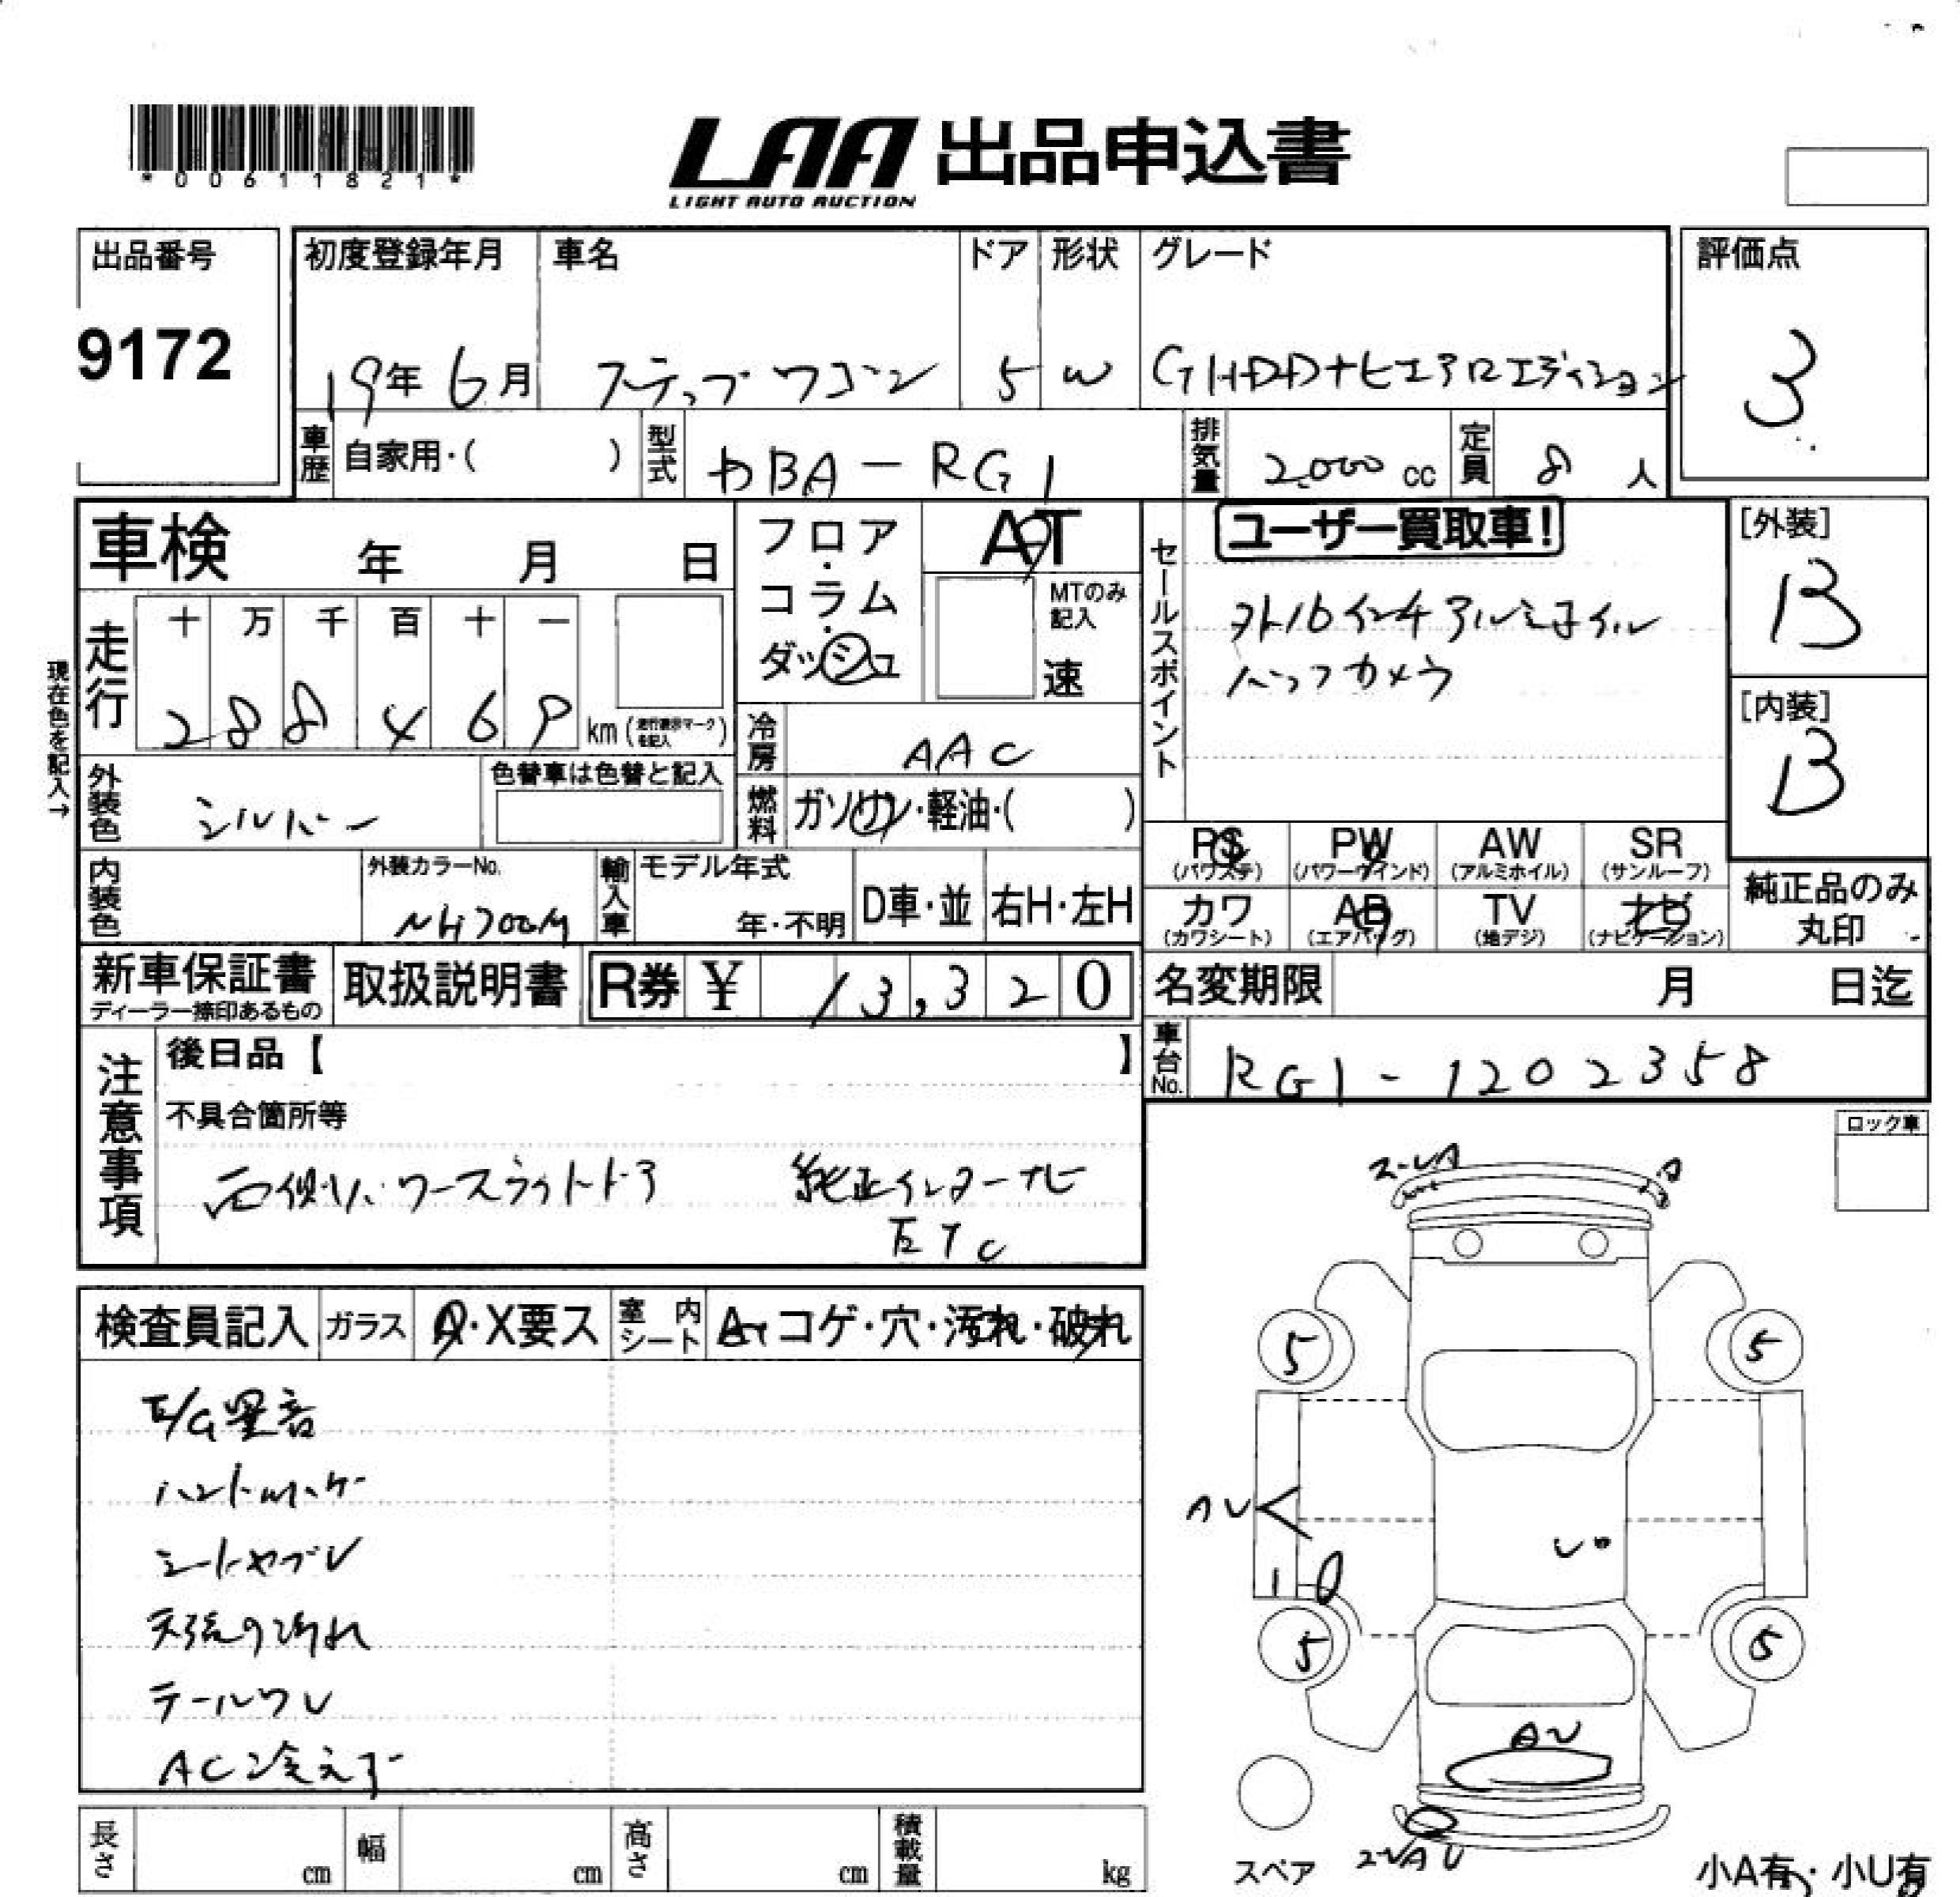 *00611821*
LAA 出品申込書
LIGHT AUTO AUCTION
出品番号
9172
初度登録年月
19年 6月
車名
ステップワゴン
ドア
5
形状
W
グレード
G HDDナビエアロエディション
評価点
3
車歴 自家用・( )
型式 DBA-RG1
排気量 2,000 cc
定員 8 人
車検 年 月 日
走行 十 万 千 百 十 一
288469 km (走行表示マークを記入)
現在色を記入→
フロア・コラム・ダッシュ
AT
MTのみ記入
速
冷房 AAC
燃料 ガソリン・軽油・( )
外装色 シルバー
色替車は色替と記入
内装色
外装カラーNo.
NH700M
輸入車 モデル年式
年・不明
D車・並 右H・左H
セールスポイント
ユーザー買取車!
外16インチアルミホイル
バックカメラ
[外装]
B
[内装]
B
PS (パワステ) PW (パワーウインド) AW (アルミホイル) SR (サンルーフ)
カワ (カワシート) AB (エアバッグ) TV (地デジ) ナビ (ナビゲーション)
純正品のみ丸印
新車保証書
ディーラー捺印あるもの
取扱説明書
R券 ¥ 13,320
名変期限 月 日迄
車台No. RG1-1202358
注意事項
後日品【 】
不具合箇所等
右側パワースライドドア 純正インターナビ
ETC
検査員記入 ガラス A・X要ス 室内シート A・コゲ・穴・汚れ・破れ
E/G異音
シートヤブレ
天張り汚れ
テールワレ
AC冷えず
ロック車
A
5 5
AU
10
5 5
AU
スペア
小A有・小U有
長さ cm 幅 cm 高さ cm 積載量 kg